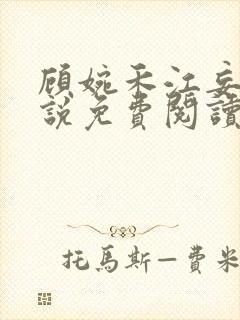 顾婉禾江妄
說免費閱讀
托馬斯—費米